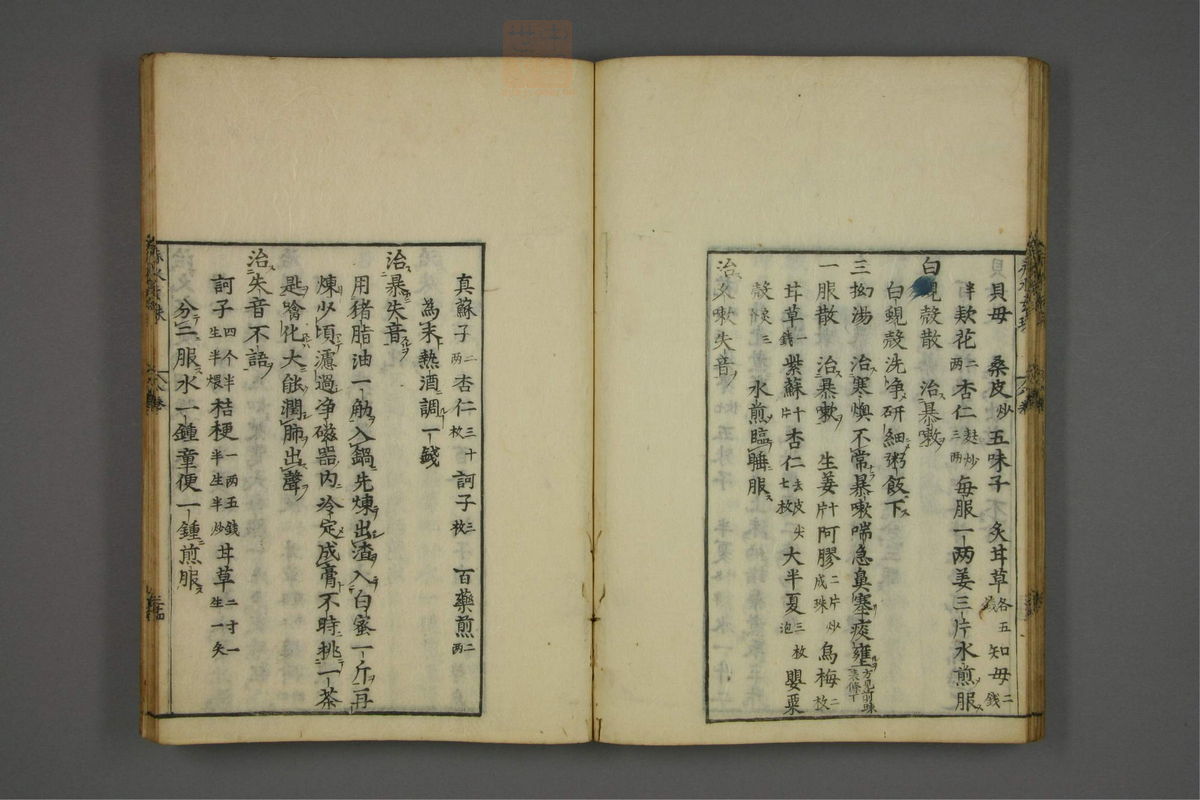 貝母 桑皮炒 五味子 炙甘草各五錢 知母二錢
半欵花二兩 杏仁麩炒三兩 每服一兩姜三片水煎服
白蜆殼散 治暴嗽
白蜆殼洗净研細粥飯下
三拗湯 治寒燠不常暴嗽喘急鼻塞痰壅
一服散 治暴嗽 生姜十片 阿膠二片炒成珠 烏梅二枚
甘草一錢 紫蘇十片 杏仁去皮尖七枚 大半夏三枚泡 嬰粟
殼三 水煎臨睡服
治久嗽失音
真蘇子二兩 杏仁三十枚 訶子三枚 百藥煎二兩
為末熱酒調一錢
治暴失音
用猪脂油一觔入鍋先煉出渣入白蜜一斤再
煉少頃濾過净磁器内冷定成膏不時挑一茶
匙噙化大能潤肺出聲
治失音不語
訶子四个半生半煨 桔梗一两五錢半生半炒 甘草二寸一生一炙
分二服水一鍾童便一鍾煎服